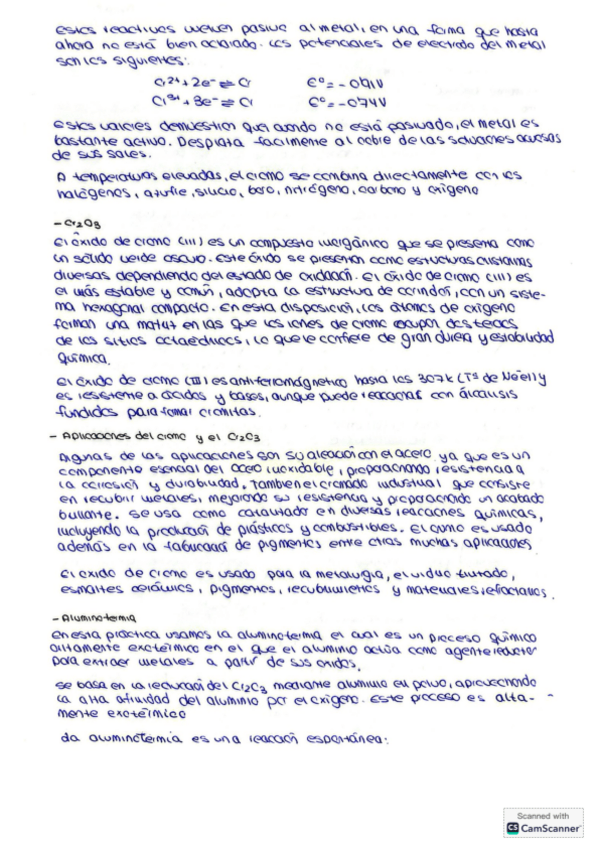 estos reactivos vuelven pasivo al metal, en una forma que hasta
ahora no está bien aclarado. Los potenciales de electrodo del metal
son los siguientes:
Cr²⁺ + 2e⁻ ⇌ Cr E° = -0'91V
Cr³⁺ + 3e⁻ ⇌ Cr E° = -0'74V
Estos valores demuestran que cuando no está pasivado, el metal es
bastante activo. Desplata facilmente al cobre de las soluciones acuosas
de sus sales.
A temperaturas elevadas, el cromo se combina directamente con los
halógenos, azufre, silicio, boro, nitrógeno, carbono y oxigeno
- Cr₂O₃
El óxido de cromo (III) es un compuesto inorgánico que se presenta como
un sólido verde oscuro. Este óxido se presentan como estructuras cristalinas
diversas dependiendo del estado de oxidación. El óxido de cromo (III) es
el más estable y común, adopta la estructura de corindón, con un siste-
ma hexagonal compacto. En esta disposición, los átomos de oxigeno
forman una matriz en las que los iones de cromo ocupan dos tercios
de los sitios octaédricos, lo que le confiere de gran dureza y estabilidad
química.
El óxido de cromo (III) es antiferromagnético hasta los 307K (Tª de Néel) y
es resistente a ácidos y bases, aunque puede reaccionar con álcalisis
fundidos para formar cromitas.
- Aplicaciones del cromo y el Cr₂O₃
Algunas de las aplicaciones son su aleación con el acero ya que es un
componente esencial del acero inoxidable, proporcionando resistencia a
la corrosión y durabilidad. También el cromado industrial que consiste
en recubrir metales, mejorando su resistencia y proporcionando un acabado
brillante. Se usa como catalizador en diversas reacciones químicas,
incluyendo la producción de plásticos y combustibles. El cromo es usado
además en la fabricación de pigmentos entre otras muchas aplicaciones
El oxido de cromo es usado para la metalurgia, el vidrio tintado,
esmaltes cerámicos, pigmentos, recubrimientos y materiales refractarios.
- Aluminotermia
En esta práctica usamos la aluminotermia el cual es un proceso químico
altamente exotérmico en el que el aluminio actúa como agente reductor
para extraer metales a partir de sus oxidos.
se basa en la reducción del Cr₂O₃ mediante aluminio en polvo, aprovechando
la alta afinidad del aluminio por el oxígeno. Este proceso es alta-
mente exotérmico
La aluminotermia es una reacción espontánea:
Scanned with
CS CamScanner